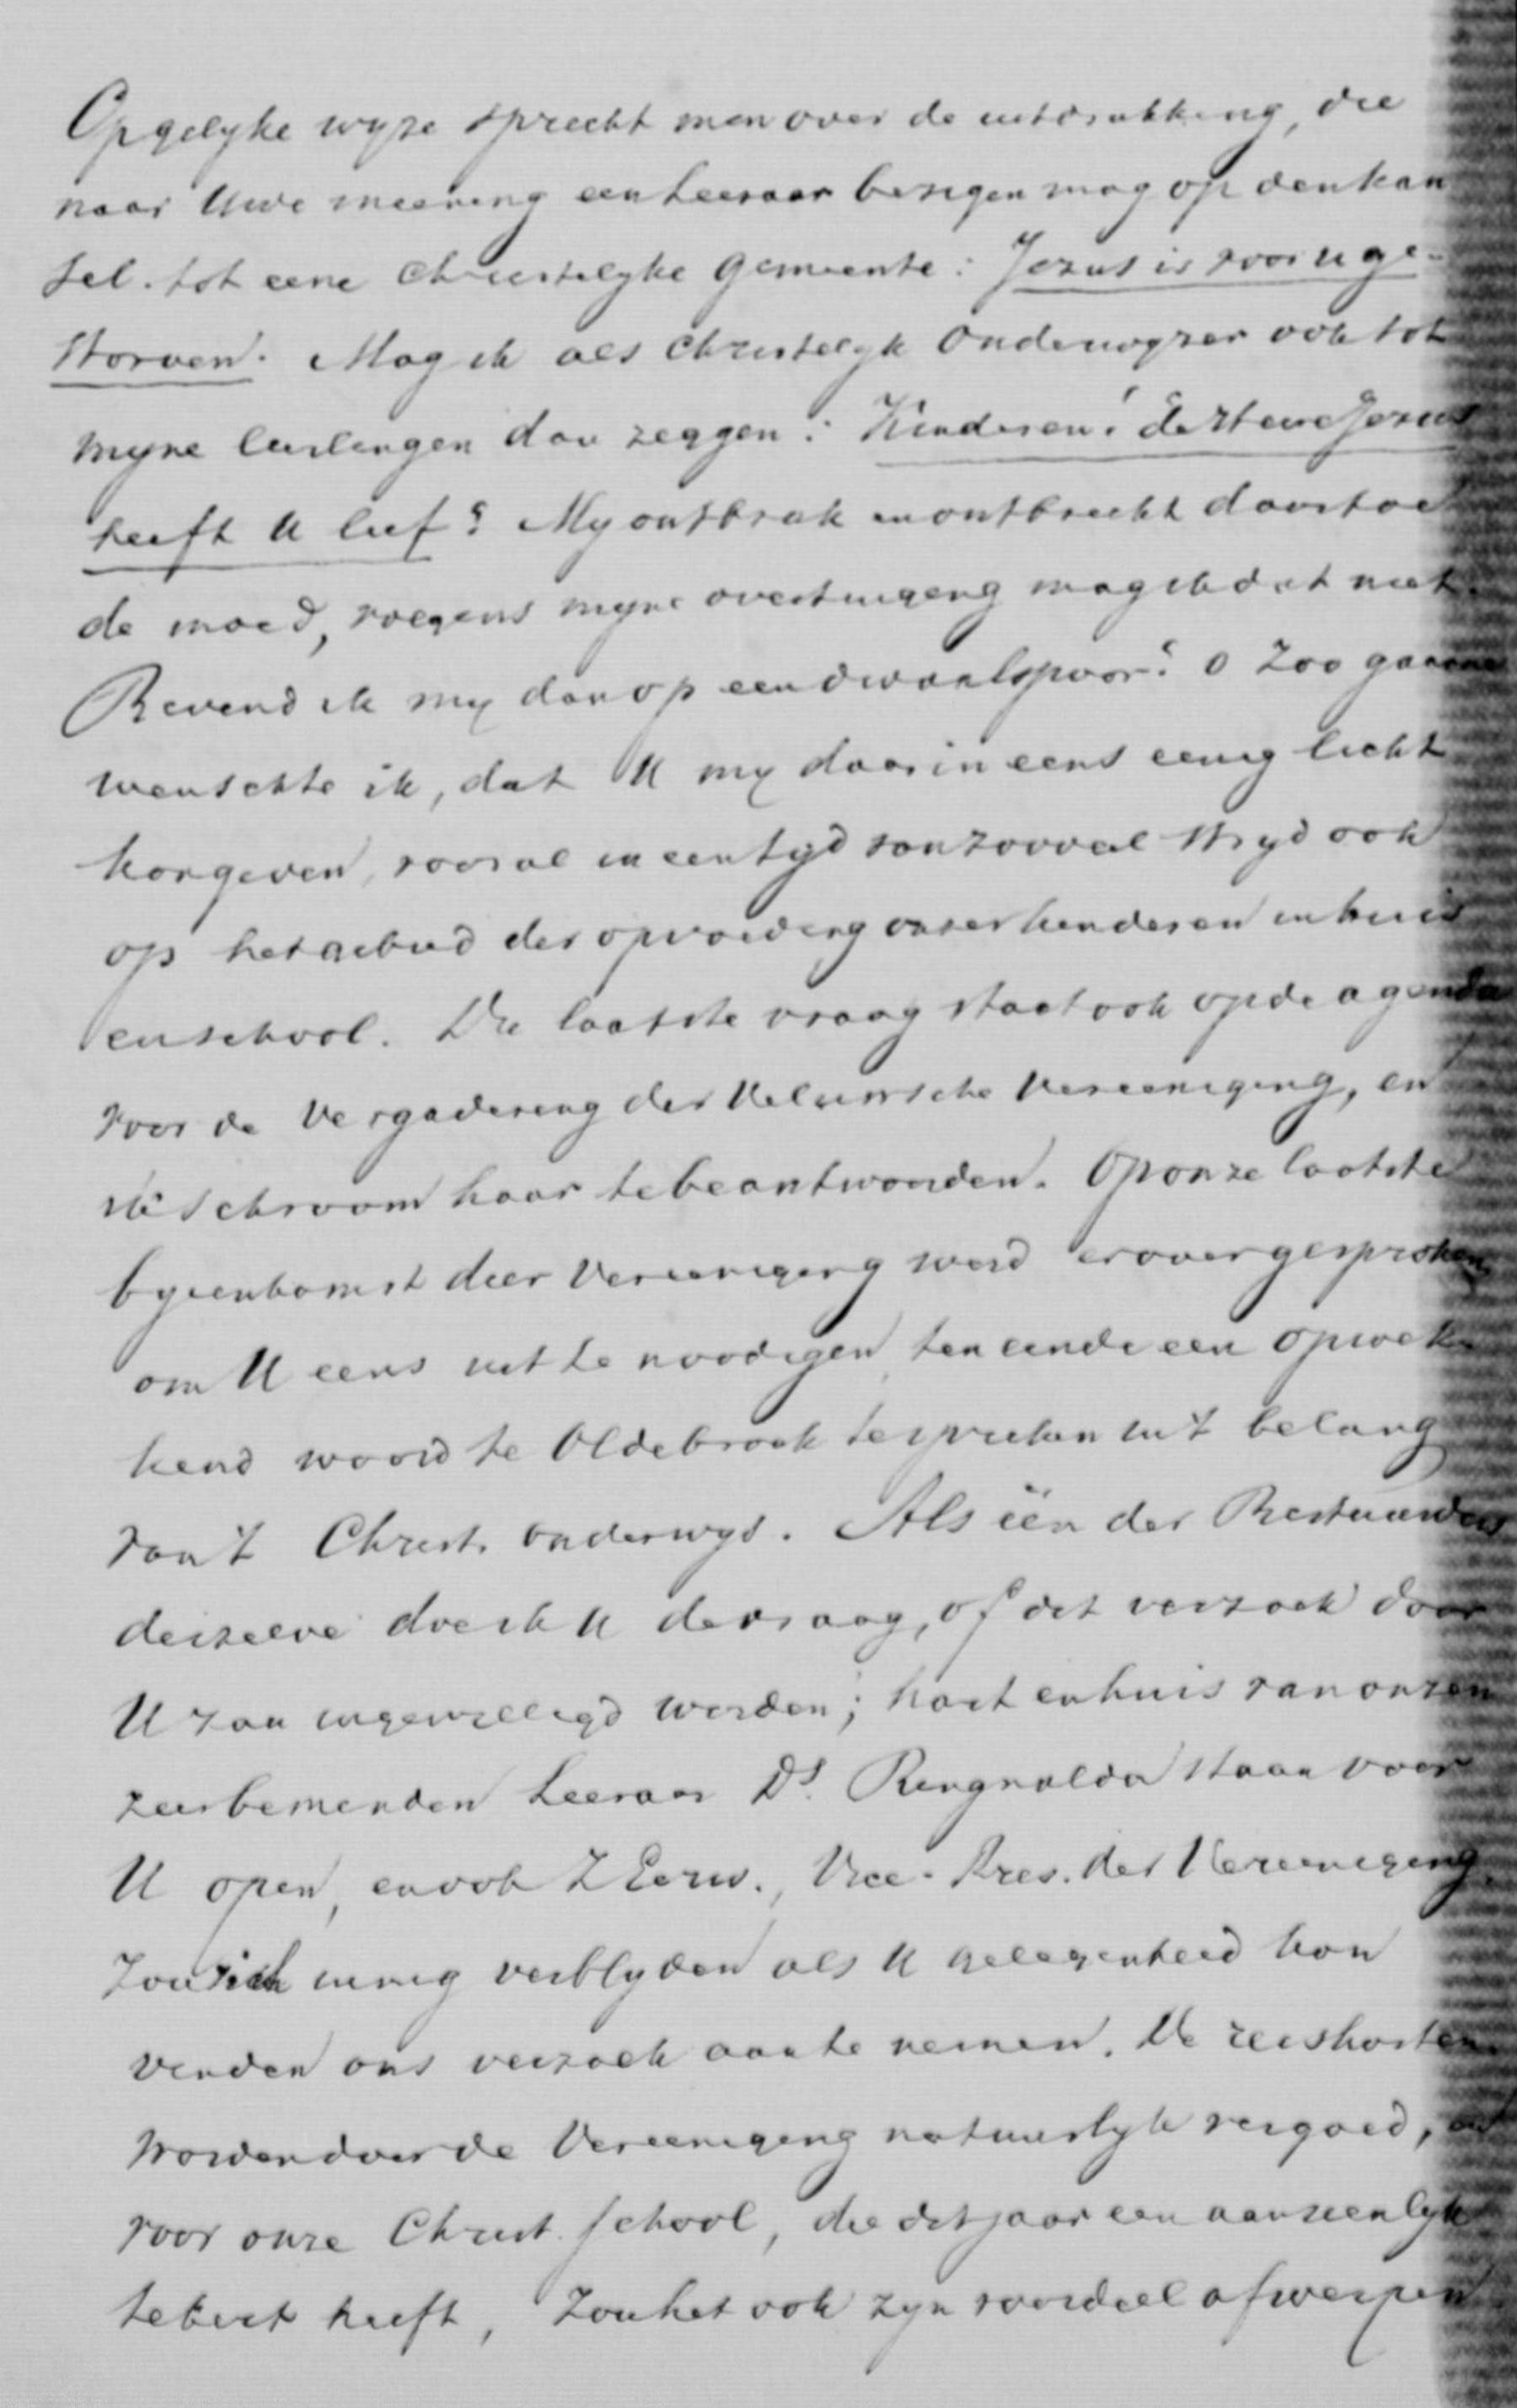 Op gelyke wyze spreekt men over de uitdrukking, die
naar Uwe meening een Leeraar bezigen mag op den kan
sel tot eene Christelyke gemeente: Jezus is voor u ge-
storven. Mag ik als Christelyk Onderwyzer ook tot
myne leerlingen dan zeggen: Kinderen! de Heere Jezus
heeft U lief? My ontbrak en ontbreekt daartoe
de moed, volgens myne overtuiging mag ik dat niet.
Bevind ik my dan op een dwaalspoor? o Zoo gaarne
wenschte ik, dat U my daarin eens eenig licht
kon geven, vooral in een tyd van zooveel stryd ook
op het gebied der opvoeding onzer kinderen in huis
en school. Die laatste vraag staat ook op de agenda
voor de Vergadering der Veluwsche Vereeniging, en
ik schroom haar te beantwoorden. Op onze laatste
byeenkomst dier Vereeniging werd er over gesproken
om U eens uit te noodigen, ten einde een opwek-
kend woord te Oldebroek te spreken in 't belang
van 't Christ. onderwys. Als één der Bestuurders
derzelve doe ik U de vraag, of dit verzoek door
U zou ingewilligd worden; hart en huis van onzen
zeer beminden Leeraar Ds. Ringnalda staan voor
U open, en ook ZEerw., Vice-Pres. der Vereeniging
zou zich innig verblyden als U gelegenheid kon
vinden ons verzoek aan te nemen. De reiskosten
worden door de Vereeniging natuurlyk vergoed, en
voor onze Christ. school, die dit jaar een aanzienlyk
tekort heeft, zou het ook zyn voordeel afwerpen